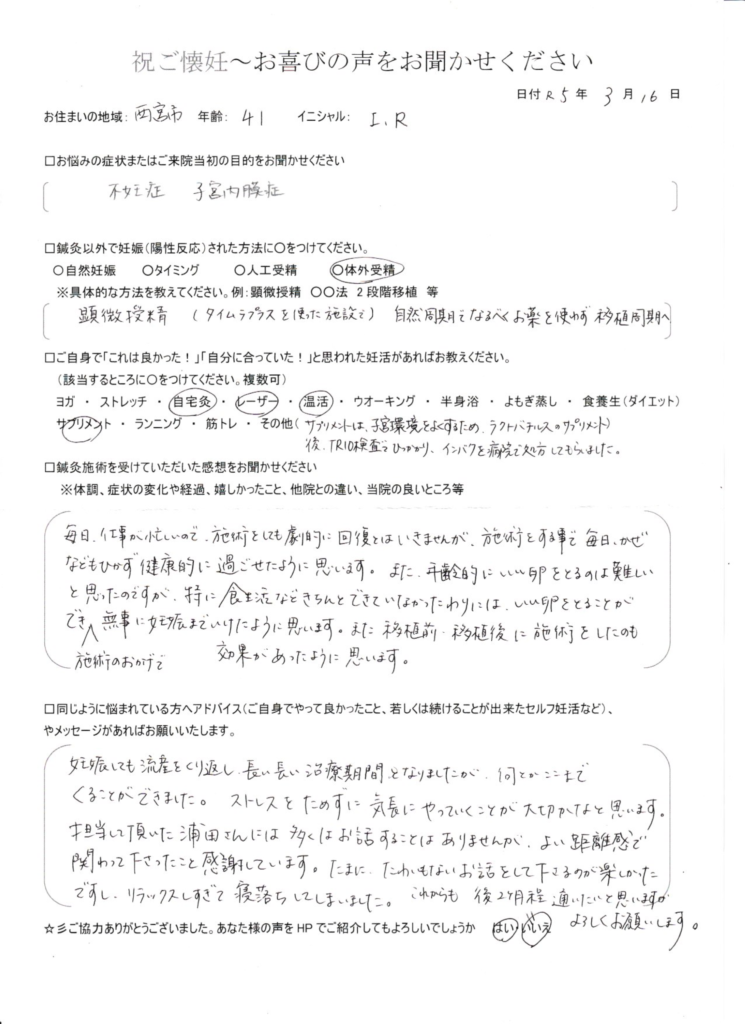 祝ご懐妊～お喜びの声をお聞かせください
日付 R5年 3月16日
お住まいの地域: 西宮市 年齢: 41 イニシャル: I.R
□お悩みの症状またはご来院当初の目的をお聞かせください
不妊症 子宮内膜症
□鍼灸以外で妊娠(陽性反応)された方法に〇をつけてください。
〇自然妊娠 〇タイミング 〇人工受精 〇体外受精
※具体的な方法を教えてください。例:顕微授精 〇〇法 2段階移植 等
顕微授精 (タイムラプスを使った施設で) 自然周期でなるべくお薬を使わず 移植周期へ
□ご自身で「これは良かった!」「自分に合っていた!」と思われた妊活があればお教えください。
(該当するところに〇をつけてください。複数可)
ヨガ ・ ストレッチ ・ 自宅灸 ・ レーザー ・ 温活 ・ ウオーキング ・ 半身浴 ・ よもぎ蒸し ・ 食養生(ダイエット)
サプリメント ・ ランニング ・ 筋トレ ・ その他( サプリメントは、子宮環境をよくするため、ラクトバチルスのサプリメント)
後、TRIO検査でひっかかり、インバクを病院で処方してもらいました。
□鍼灸施術を受けていただいた感想をお聞かせください
※体調、症状の変化や経過、嬉しかったこと、他院との違い、当院の良いところ等
毎日、仕事が忙しいので、施術をしても劇的に回復とはいきませんが、施術をする事で 毎日、かぜ
などもひかず健康的に過ごせたように思います。また、年齢的にいい卵をとるのは難しい
と思ったのですが、特に食生活などきちんとできていなかったわりには、いい卵をとることが
でき 無事に妊娠までいけたように思います。また移植前・移植後に施術をしたのも
施術のおかげで 効果があったように思います。
□同じように悩まれている方へアドバイス(ご自身でやって良かったこと、若しくは続けることが出来たセルフ妊活など)、
やメッセージがあればお願いいたします。
妊娠しても流産をくり返し、長い長い治療期間となりましたが、何とかここまで
くることができました。ストレスをためずに気長にやっていくことが大切かなと思います。
担当して頂いた浦田さんには多くはお話することはありませんが、よい距離感で
関わって下さったこと感謝しています。たまに、たわいもないお話をして下さるのが楽しかった
ですし、リラックスしすぎて寝落ちしてしまいました。これからも後2ヶ月程通いたいと思いますが
よろしくお願いします。
☆彡ご協力ありがとうございました。あなた様の声をHPでご紹介してもよろしいでしょうか はい・いいえ